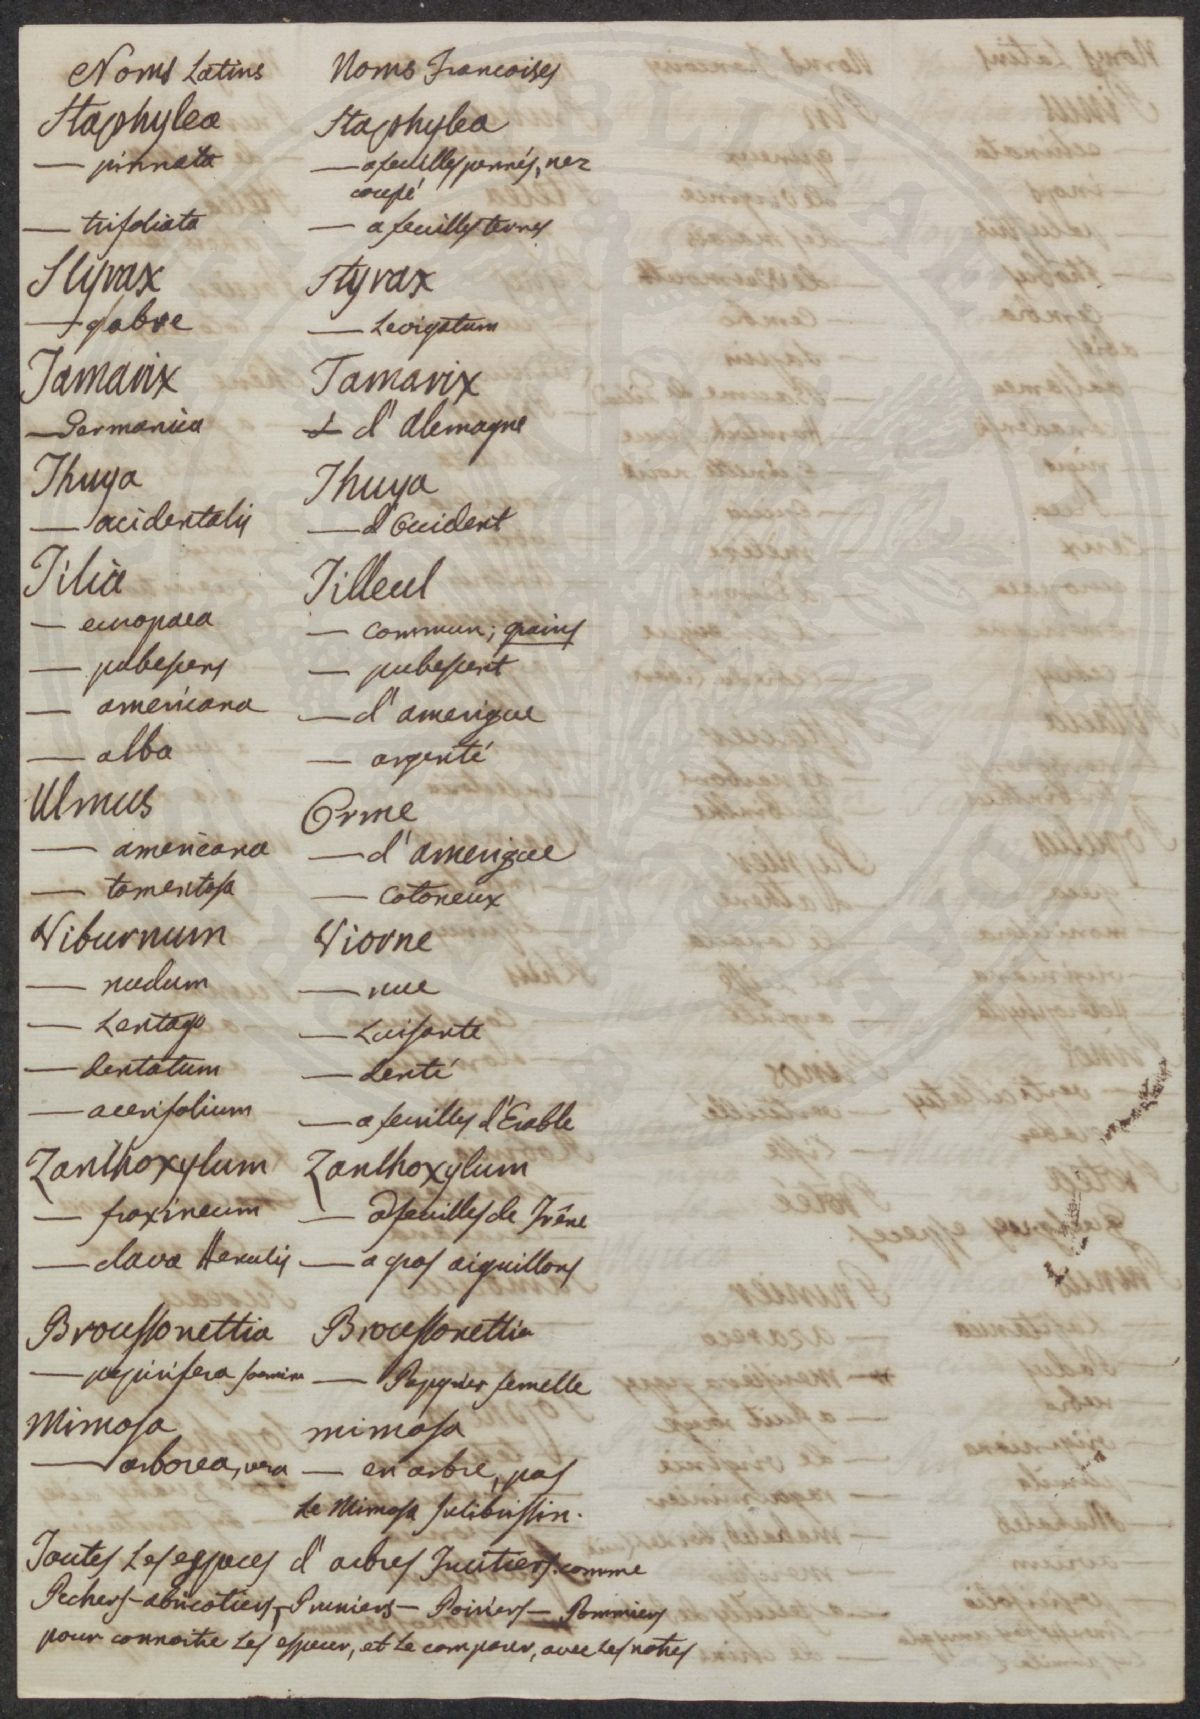 Noms Latins Noms Francoises
Staphylea Staphylea
— pinnata — a feuilles pennés, nez
coupé
— trifoliata — a feuilles ternes
Styrax Styrax
— glabre — Levigatum
Tamarix Tamarix
— Germanica — d'Alemagne
Thuya Thuya
— occidentalis — d'Occident
Tilia Tilleul
— europaea — commun; grains
— pubescens — pubescent
— americana — d'amerique
— alba — argenté
Ulmus Orme
— americana — d'amerique
— tomentosa — cotoneux
Viburnum Viorne
— nudum — nue
— Lentago — Luisante
— dentatum — denté
— acerifolium — a feuilles d'Erable
Zanthoxylum Zanthoxylum
— fraxineum — a feuilles de Frêne
— clava Herculis — a gros aiguillons
Broussonettia Broussonettia
— papirifera — Papyrier femelle
Mimosa mimosa
— arborea, vera — en arbre, pas
Le Mimosa Julibrissin.
Toutes Les especes d'arbres Fruitiers. comme
Pechers – abricotiers, Pruniers – Poiriers – Pommiers
pour connoitre Les especes, et Le comparer, avec Les notres